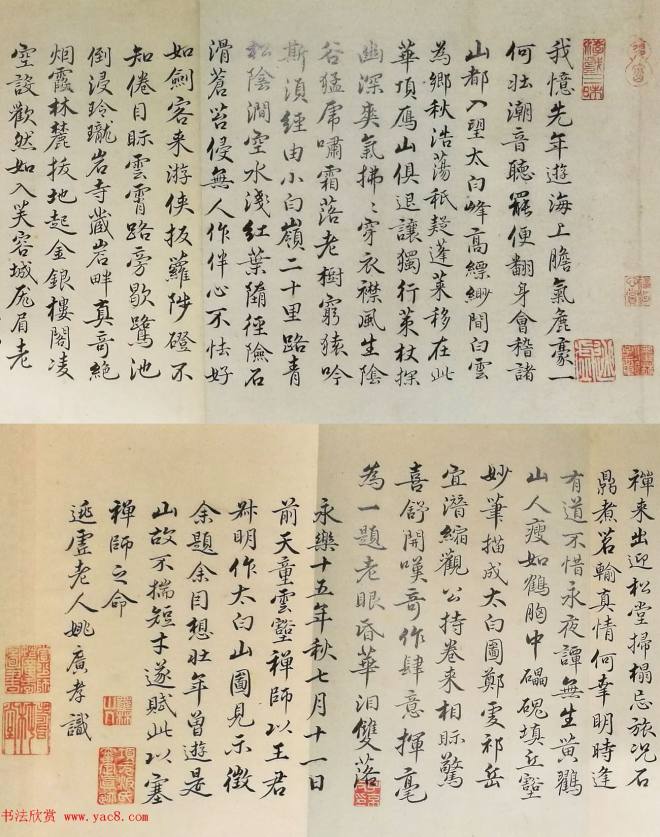 我憶先年遊海上膽氣麄豪一
何壯潮音聽罷便翻身會稽諸
山都入望太白峰高縹緲間白雲
為鄉秋浩蕩秖疑蓬萊移在此
華頂鴈山俱退讓獨行策杖探
幽深爽氣拂〻穿衣襟風生陰
谷猛虎嘯霜落老樹窮猿吟
斯須經由小白嶺二十里路青
松陰澗空水淺紅葉隨徑險石
滑蒼苔侵無人作伴心不怯好
如劍客来游俠扳蘿陟磴不
知倦目眎雲霄路旁歇鷺池
倒浸玲瓏岩寺藏岩畔真奇絕
烟霞林麓拔地起金銀樓閣凌
空設歡然如入芙容城厖眉老
禪来出迎松堂掃榻忌旅况石
鼎煮茗輸真情何幸明時逢
有道不惜永夜譚無生黃鶴
山人瘦如鶴胸中礧磈填丘壑
妙筆描成太白圖鄭虔祁岳
宜潛縮觀公持卷来相眎驚
喜舒開嘆奇作肆意揮毫
為一題老眼昏華淚雙落
永樂十五年秋七月十一日
前天童雲壑禪師以王君
叔明作太白山圖見示徵
余題余目想壯年曾遊是
山故不揣短才遂賦此以塞
禪師之命
逃虛老人姚廣孝識
书法欣赏 www.yac8.com